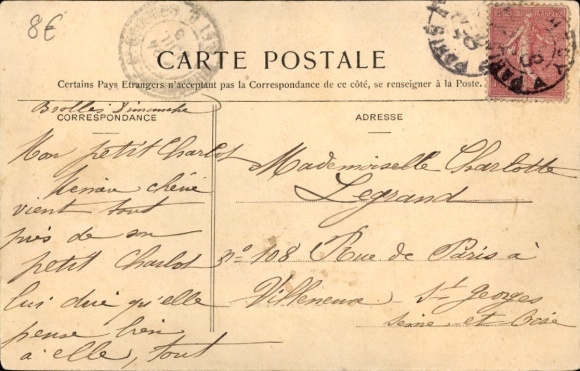 8€
CARTE POSTALE
Certains Pays Etrangers n'acceptant pas la Correspondance de ce côté, se renseigner à la Poste.
Brolles Dimanche
CORRESPONDANCE
ADRESSE
Mon petit Charlot
chérie
vient tout
près de son
petit Charlot
lui dire qu'elle
pense bien
à elle, tout
Mademoiselle Charlotte
Legrand
n° 108 Rue de Paris à
Villeneuve St Georges
Seine et Oise